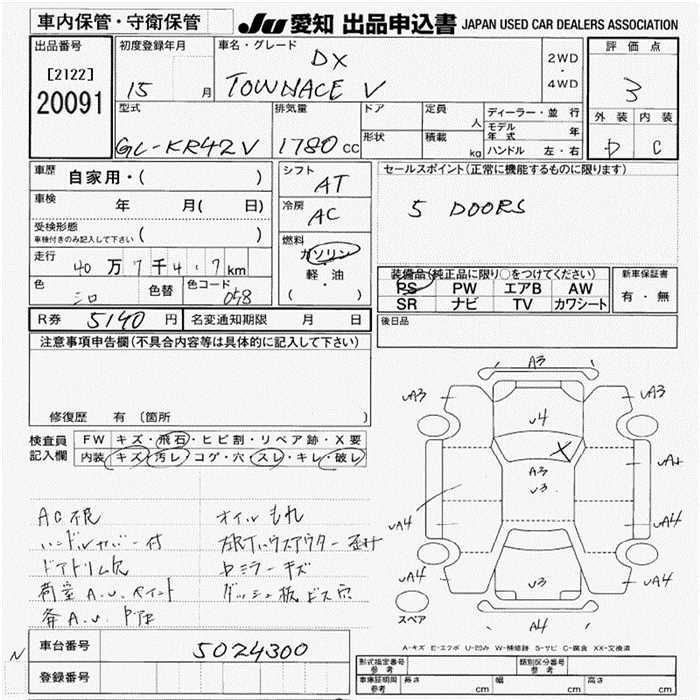 車内保管・守衛保管
JU 愛知 出品申込書 JAPAN USED CAR DEALERS ASSOCIATION
出品番号
[2122]
20091
初度登録年月
15 月
車名・グレード
DX
TOWNACE V
2WD
・
4WD
評価点
3
外装 内装
D C
型式
GL-KR42V
排気量
1780 cc
ドア
形状
定員 人
積載 kg
ディーラー・並行
モデル年式 年
ハンドル 左・右
車歴 自家用・( )
車検 年 月( 日)
受検形態
車検付きのみ記入して下さい ( )
走行 40 万 7 千 4 7 km
色 シロ 色替 色コード 058
シフト AT
冷房 AC
燃料
ガソリン
軽・油
( ・ )
セールスポイント(正常に機能するものに限ります)
5 DOORS
装備品(純正品に限り○をつけてください)
PS PW エアB AW
SR ナビ TV カワシート
新車保証書
有・無
R券 5140 円 名変通知期限 月 日
後日品
注意事項申告欄(不具合内容等は具体的に記入して下さい)
修復歴 有 〔箇所 〕
検査員記入欄
FW キズ・飛石・ヒビ割・リペア跡・X要
内装 キズ・汚レ・コゲ・穴・スレ・キレ・破レ
AC不良 オイルもれ
ハンドルカバー付
ドアトリム穴 ミラーキズ
荷室A.U.ペイント ダッシュ板ビス穴
A.U.
A3
UA3 UA3
U4
X
A3
U3
UA4 UA4
UA4 UA4
U3
A4
スペア
A-キズ E-エクボ U-凹み W-補修跡 S-サビ C-腐食 XX-交換済
N
車台番号 5024300
登録番号
形式指定番号 参考
類別区分番号 参考
車庫証明用 参考 長さ cm 幅 cm 高さ cm